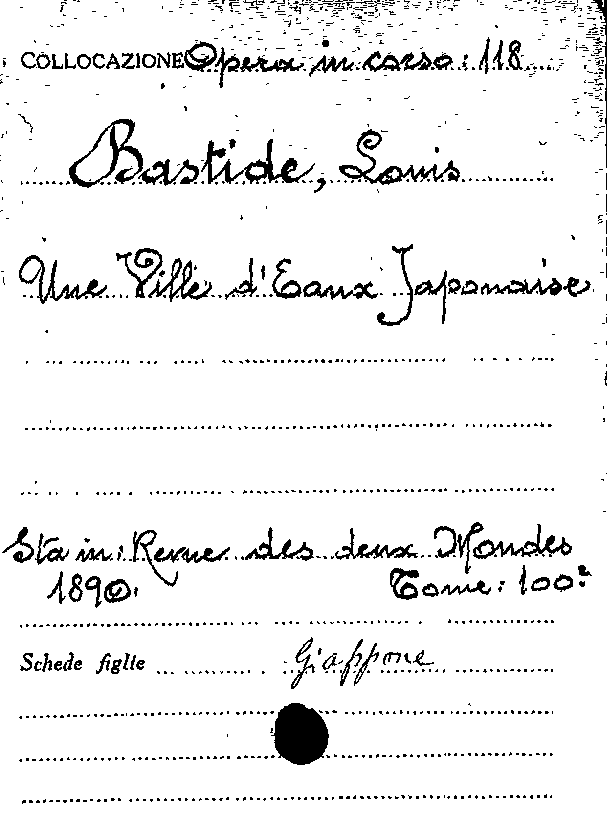 COLLOCAZIONE Opera in corso: 118
Bastide, Louis
Une Ville d'Eaux Japonaise
Sta in: Revue des deux Mondes
1890. Tome: 100º
Schede figlie Giappone